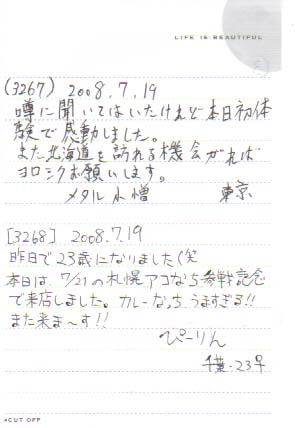 LIFE IS BEAUTIFUL
(3267) 2008.7.19
噂に聞いてはいたけれど本日初体
験で感動しました。
また北海道を訪れる機会があれば
ヨロシクお願いします。
メタル小僧 東京
[3268] 2008.7.19
昨日で23歳になりました(笑
本日は、7/21の札幌アコなち参戦記念
で来店しました。カレーなっち うますぎる!!
また来ま〜す!!
ぴーりん
千葉・23才
◂CUT OFF